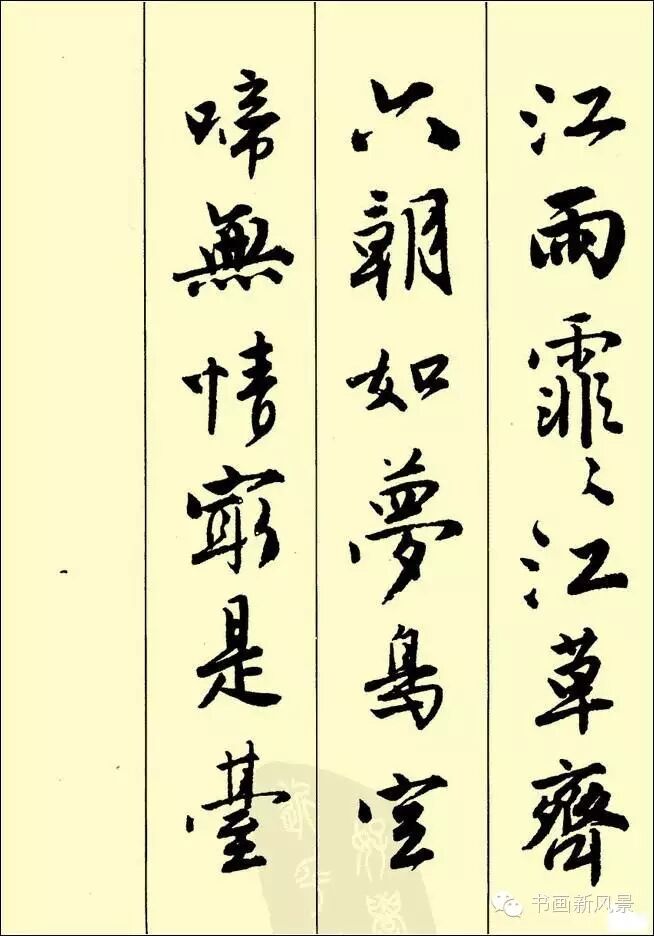 江雨霏〻江草齊
六朝如夢鳥空
啼無情㝡是臺
书画新风景